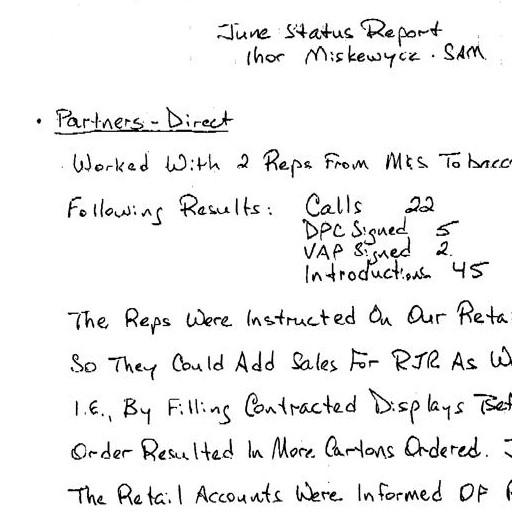 June Status Report
Ihor Miskewycz · SAM
· Partners - Direct
Worked With 2 Reps From M&S Tobacc
Following Results: Calls 22
DPC Signed 5
VAP Signed 2
Introductions 45
The Reps Were Instructed On Our Reta
So They Could Add Sales For RJR As W
I.E., By Filling Contracted Displays Bef
Order Resulted In More Cartons Ordered.
The Retail Accounts Were Informed OF